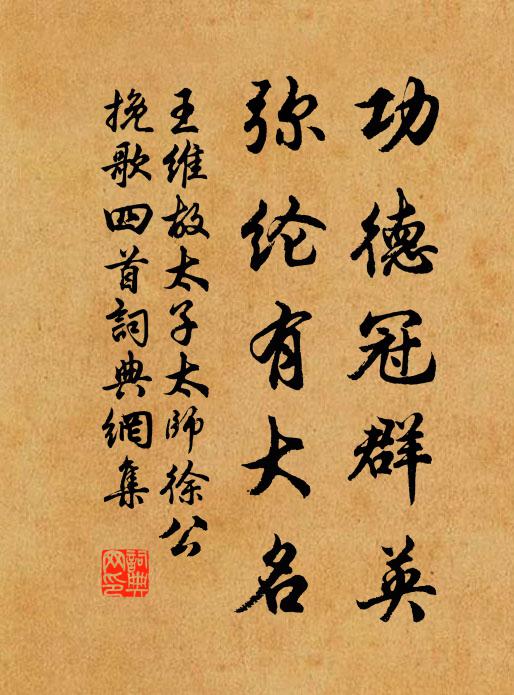 功德冠群英
弥纶有大名
王维故太子太師徐公
挽歌四首詞典網集
詞典网印